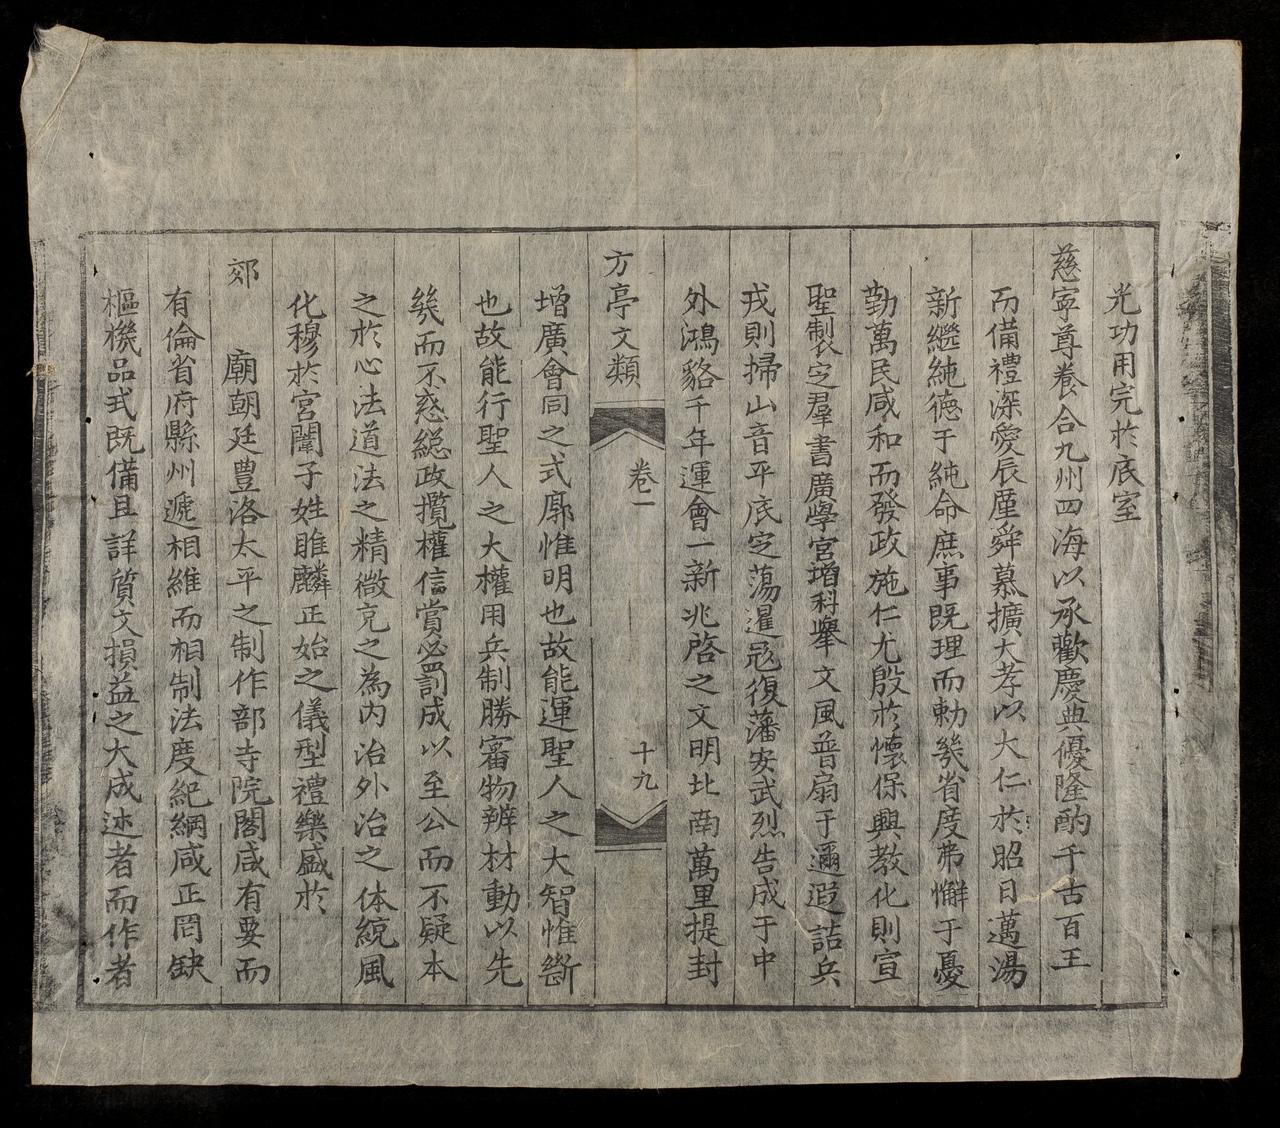 光功用完於底室
慈寧尊養合九州四海以承歡慶典優隆酌千古百王
而備禮深愛辰厪舜慕擴大孝以大仁於昭日邁湯
新繼純徳于純命庶事既理而勅㡬省度弗懈于憂
勤萬民咸和而發政施仁尤殷於懷保興教化則宣
聖製定羣書廣學宮增科舉文風普扇于邇遐詰兵
戎則掃山音平底定蕩暹冦復藩安武烈告成于中
外鴻貉千年運會一新兆啓之文明北南萬里提封
方亭文類
卷二
十九
增廣會同之式廓惟明也故能運聖人之大智惟斷
也故能行聖人之大權用兵制勝審物辨材動以先
㡬而不惑総政攬權信賞必罰成以至公而不疑本
之於心法道法之精微克之為内治外治之体統風
化穆於宮闈子姓雎麟正始之儀型禮樂盛於
郊廟朝廷豊洛太平之制作部寺院閣咸有要而
有倫省府縣州遞相維而相制法度紀綱咸正罔缺
樞機品式既備且詳質文損益之大成述者而作者